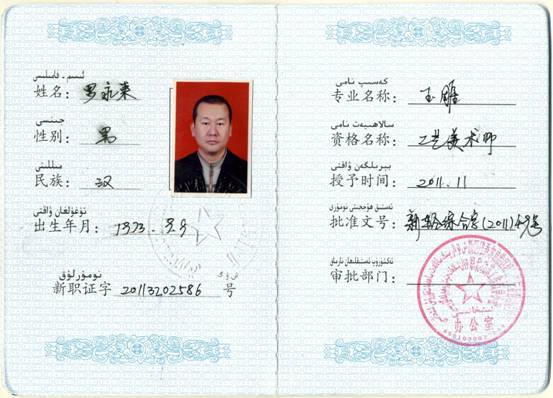 ئىسىم - فامىلىس
姓名: 罗永来
جىنسى
性别: 男
مىللىتى
民族: 汉
تۇغۇلغان ۋاقتى
出生年月: 1973.
نومۇرلۇق
新职证字 20113202586 号
كەسىپ نامى
专业名称: 玉雕
سالاھىيەت نامى
资格名称: 工艺美术师
بېرىلگەن ۋاقتى
授予时间: 2011.11
تەستىق ھۆججىتى نومۇرى
批准文号: 新轻综合字(2011) 号
审批部门:
办公室